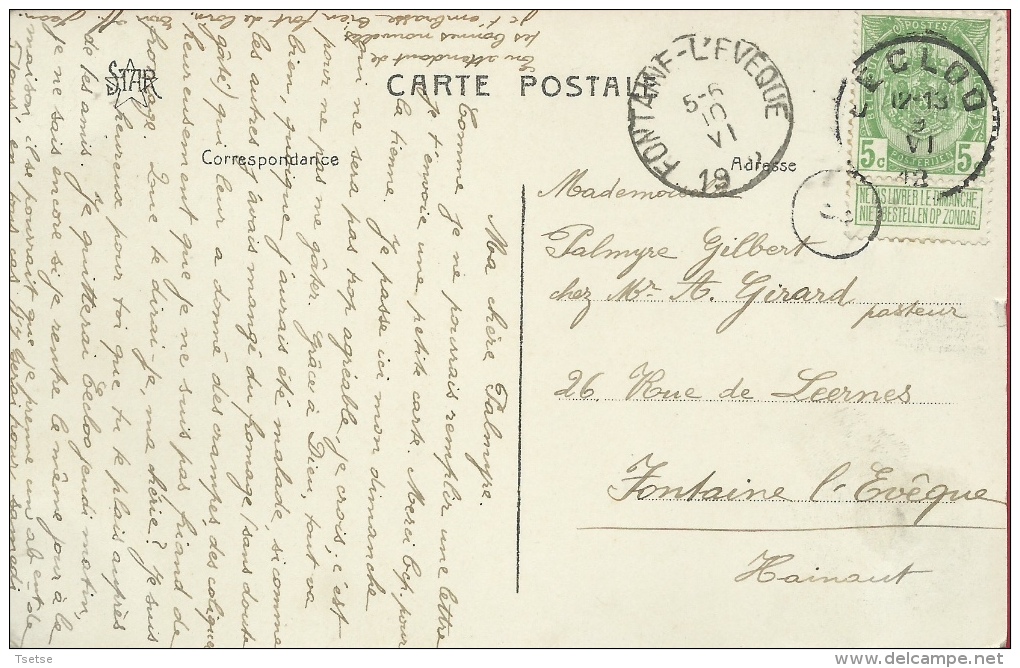 CARTE POSTALE
STAR
Correspondance
Adresse
Ma chère Palmyre.
Comme je ne pourrais remplir une lettre
je t'envoie une petite carte. Merci bcp. pour
la tienne. Je passe ici mon dimanche
qui ne sera pas trop agréable, je crois, c'est
pour ne pas me gâter. Grâce à Dieu, tout va
bien, quoique j'aurais été malade, si comme
les autres j'avais mangé du fromage (sans doute
gâté) qui leur a donné des crampes, des coliques
heureusement que je ne suis pas friand de
fromage. Que te dirai-je, ma chérie? Je suis
heureux pour toi que tu te plais auprès
de tes amis. Je quitterai Eecloo jeudi matin,
je ne sais encore si je rentre le même jour à la
maison, il se pourrait que je prenne un abt de
5 jours, en tous cas, j'y serai pour samedi.
En attendant de
tes bonnes nouvelles
je t'embrasse bien fort de loin.
Ton aff. Jean.
FONTAINE-L'EVEQUE
5-6
10
VI
19
EECLOO
12-13
9
VI
12
POSTES
POSTERIJEN
5c 5c
NE PAS LIVRER LE DIMANCHE.
NIET BESTELLEN OP ZONDAG.
Mademoiselle
Palmyre Gilbert
chez Mr. A. Girard
pasteur
26, Rue de Leernes
Fontaine l'Evêque
Hainaut
Tsetse
http://www.delcampe.net